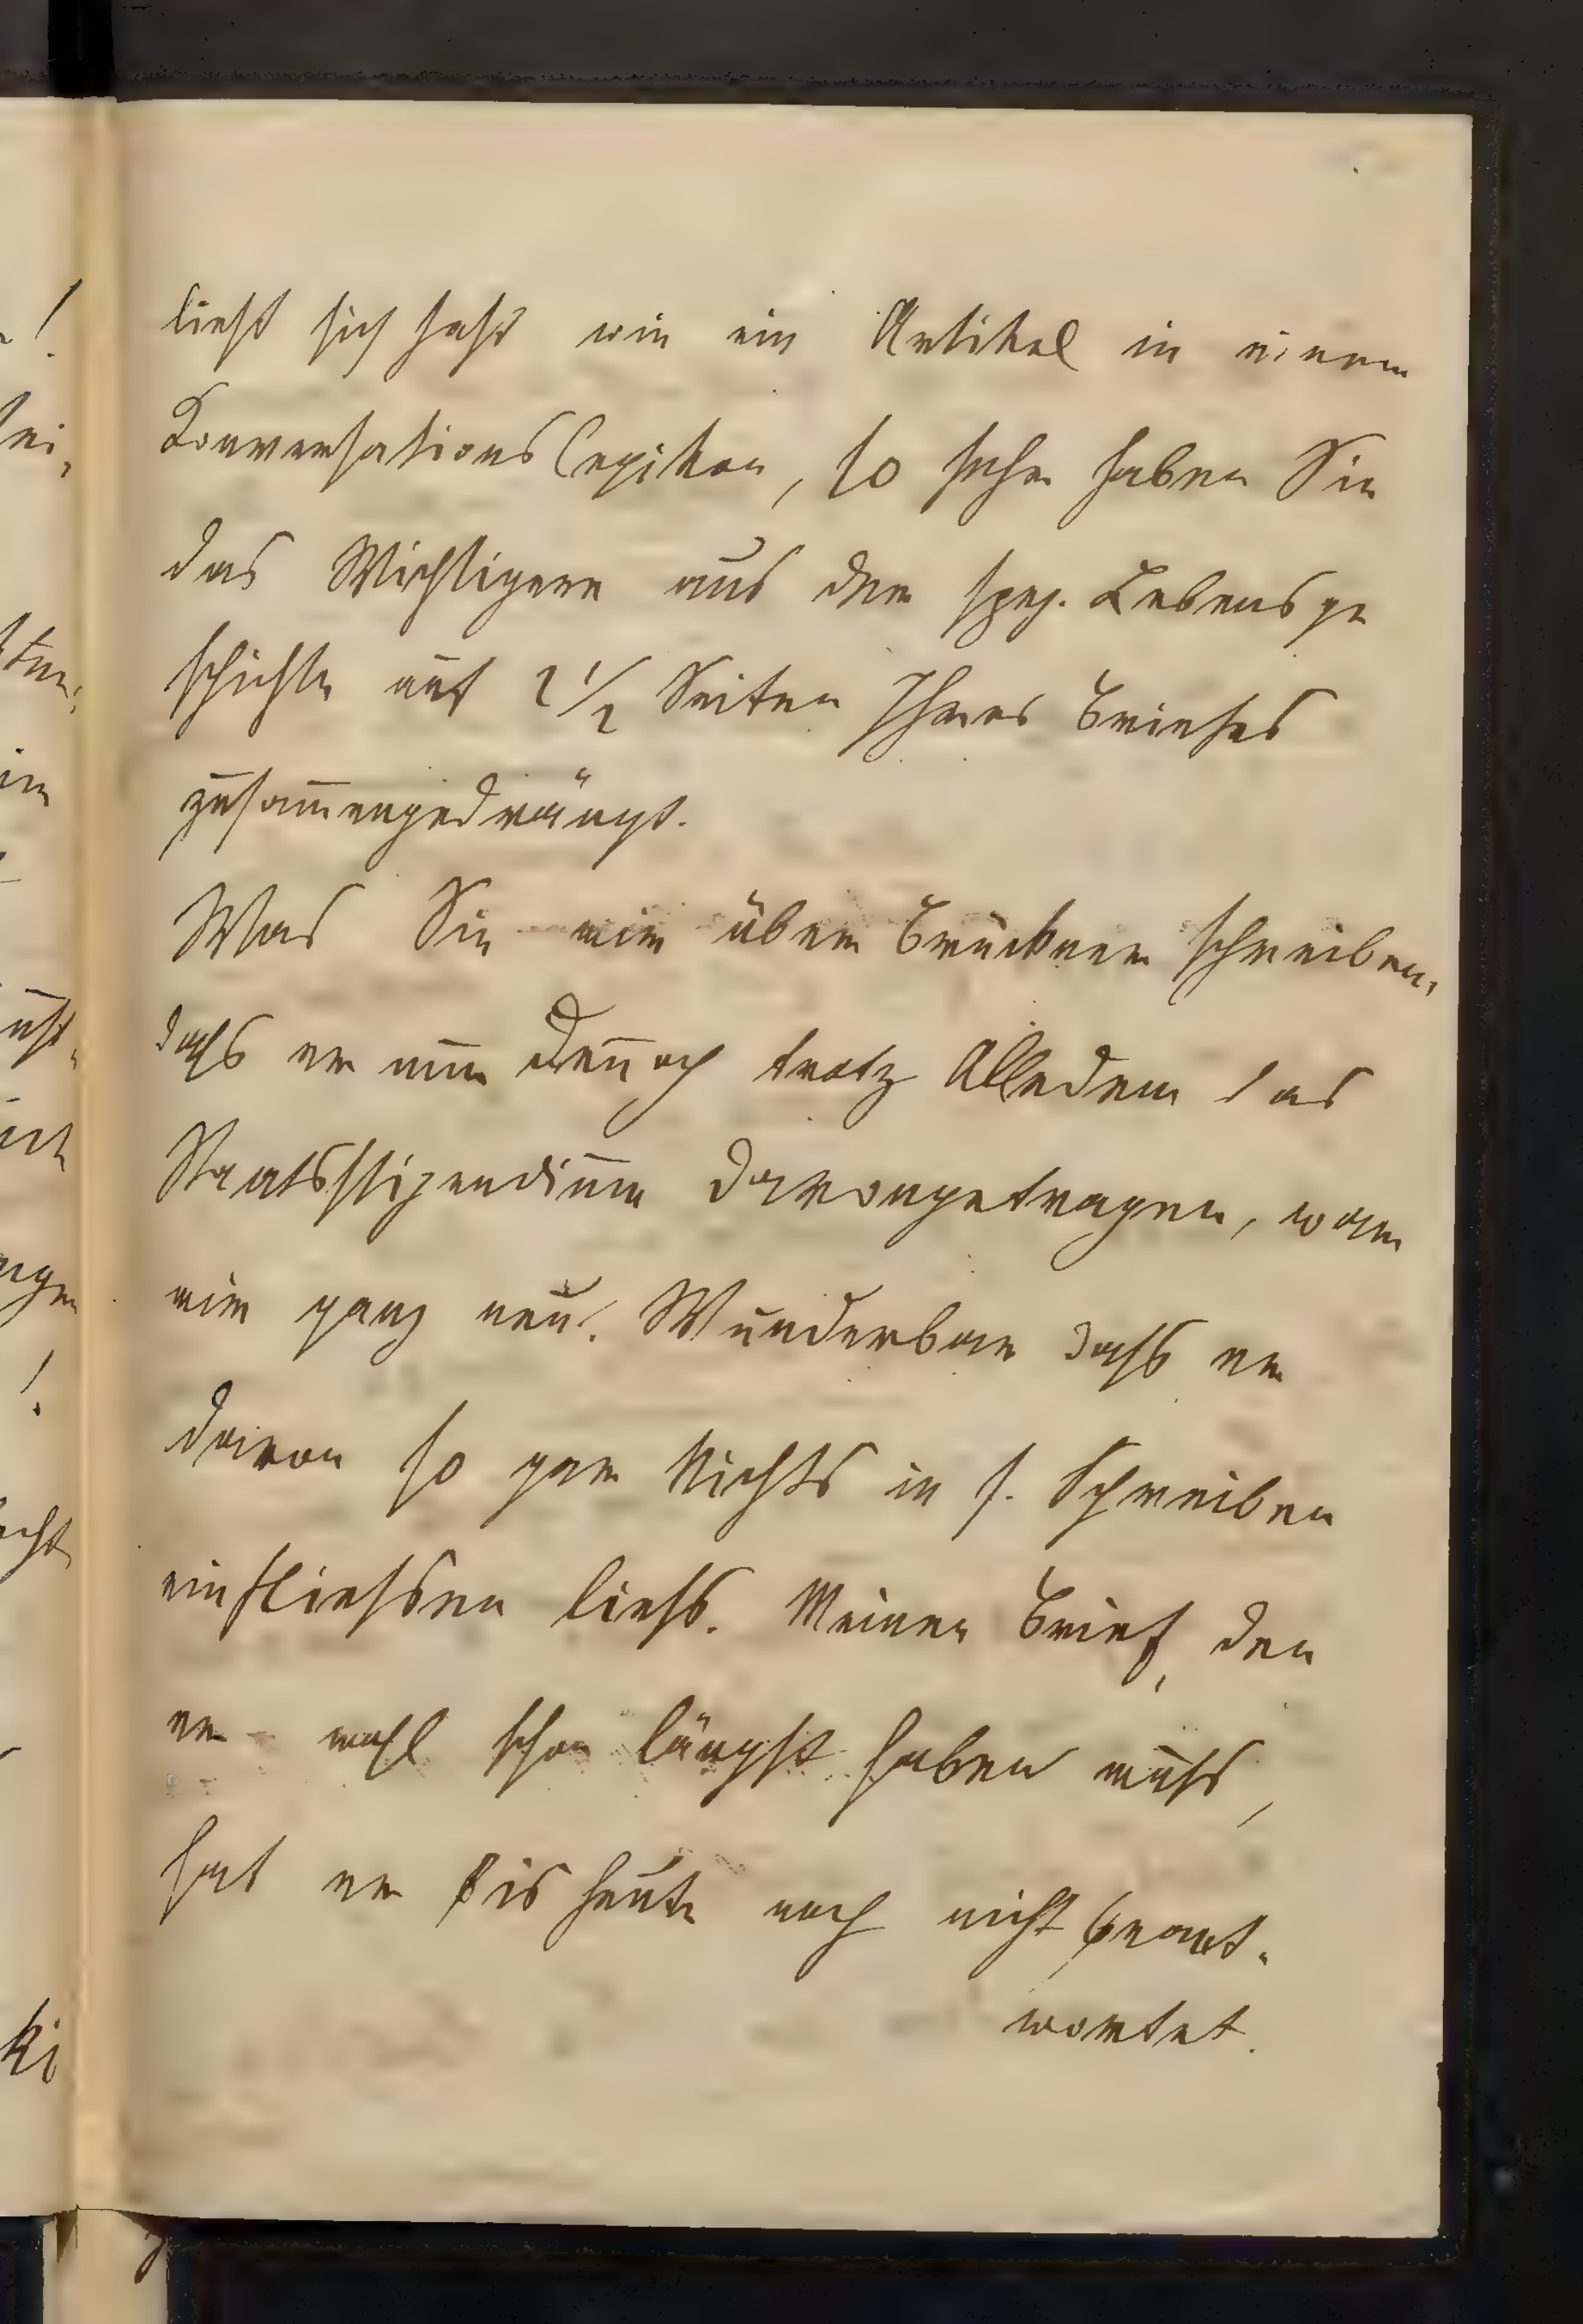 liest sich fast wie ein Artikel in einem
Conversationslexikon, so sehr haben Sie
das Wichtigere aus der spez. Lebensge
schichte auf 2 1/2 Seiten Ihres Briefes
zusam̅engedrängt.
Was Sie mir über Brückner schreiben,
dass er nun den̅och trotz Alledem das
Staatsstipendium davongetragen, war
mir ganz neu. Wunderbar dass er
davon so gar Nichts in s. Schreiben
einfliessen liess. Meinen Brief, den
er wohl schon längst haben muss,
hat er bis heute noch nicht beant-
wortet.